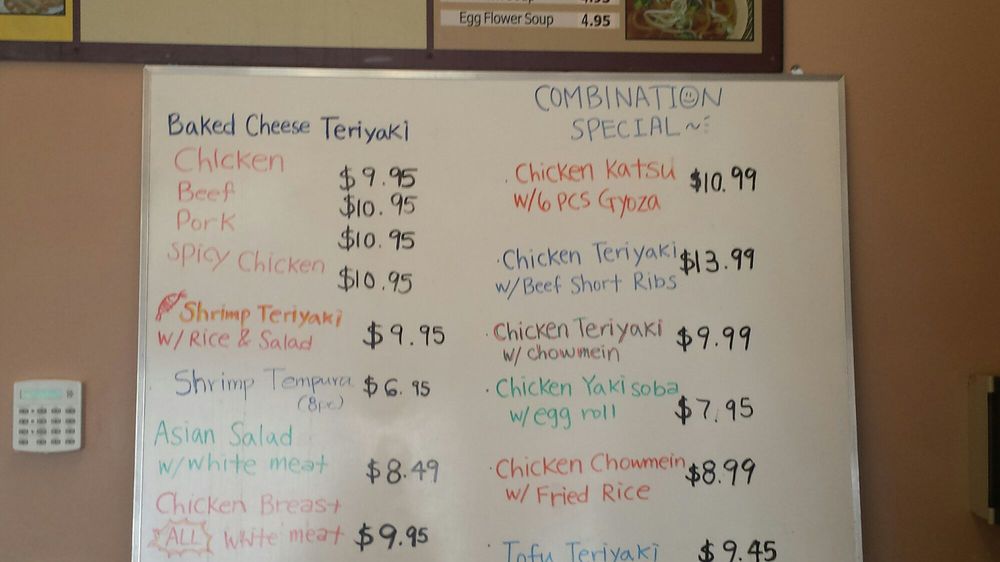 Egg Flower Soup 4.95
Baked Cheese Teriyaki
Chicken $9.95
Beef $10.95
Pork $10.95
Spicy Chicken $10.95
Shrimp Teriyaki
w/ Rice & Salad $9.95
Shrimp Tempura $6.95
(8pc)
Asian Salad
w/white meat $8.49
Chicken Breast
ALL white meat $9.95
COMBINATION
SPECIAL~
Chicken Katsu $10.99
w/6 PCS Gyoza
Chicken Teriyaki $13.99
w/Beef Short Ribs
Chicken Teriyaki $9.99
w/ chowmein
Chicken Yakisoba
w/egg roll $7.95
Chicken Chowmein $8.99
w/ Fried Rice
Tofu Teriyaki $9.45